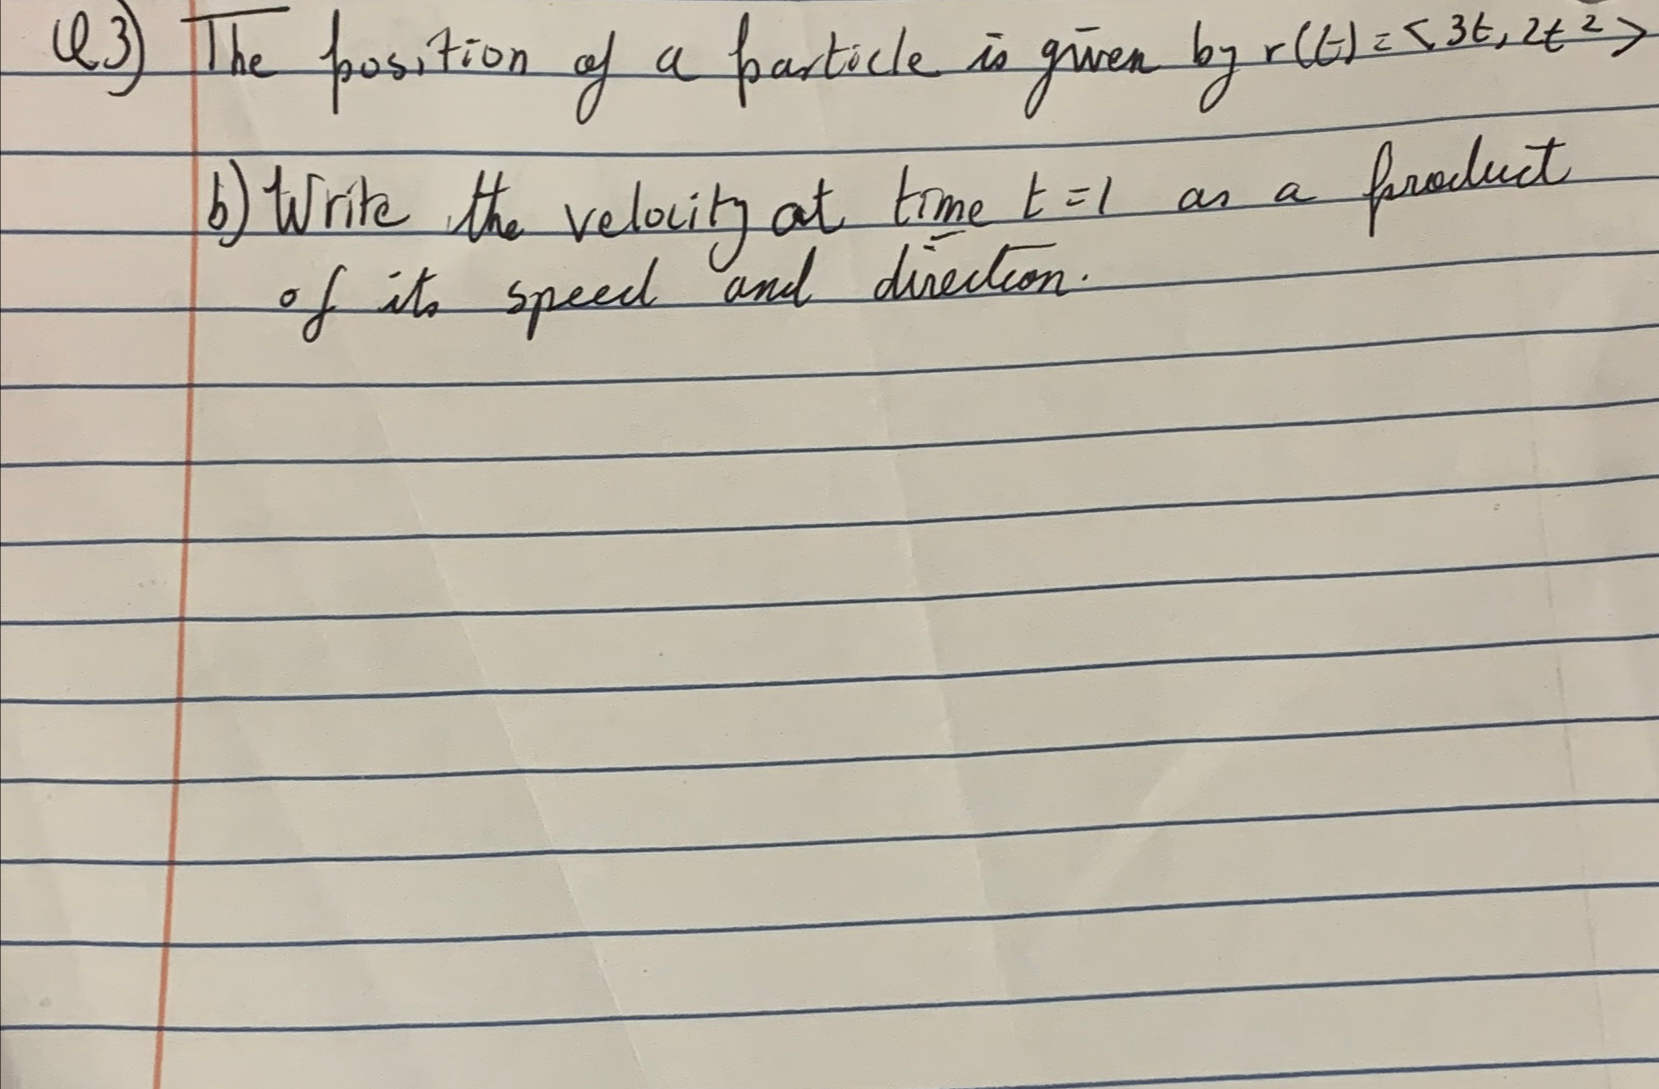 Q3) The position of a particle is given by r(t) = <3t, 2t²>
b) Write the velocity at time t = 1 as a product
of its speed and direction.